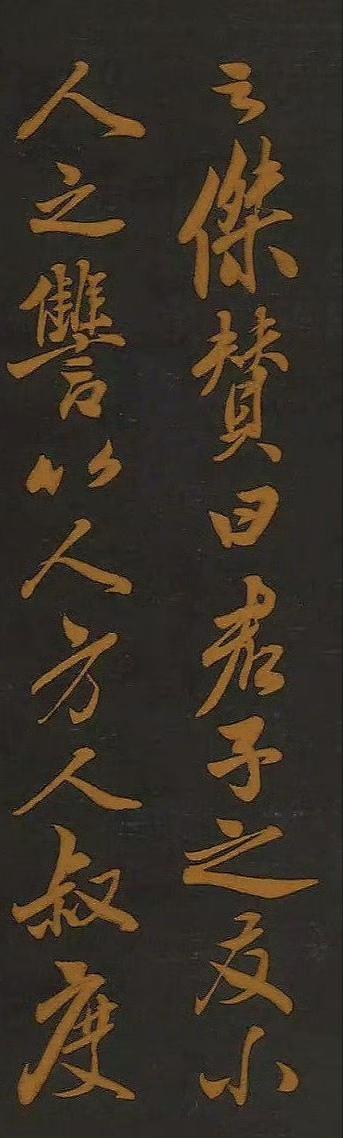 云傑贊曰君子之友小
人之讐以人方人叔度